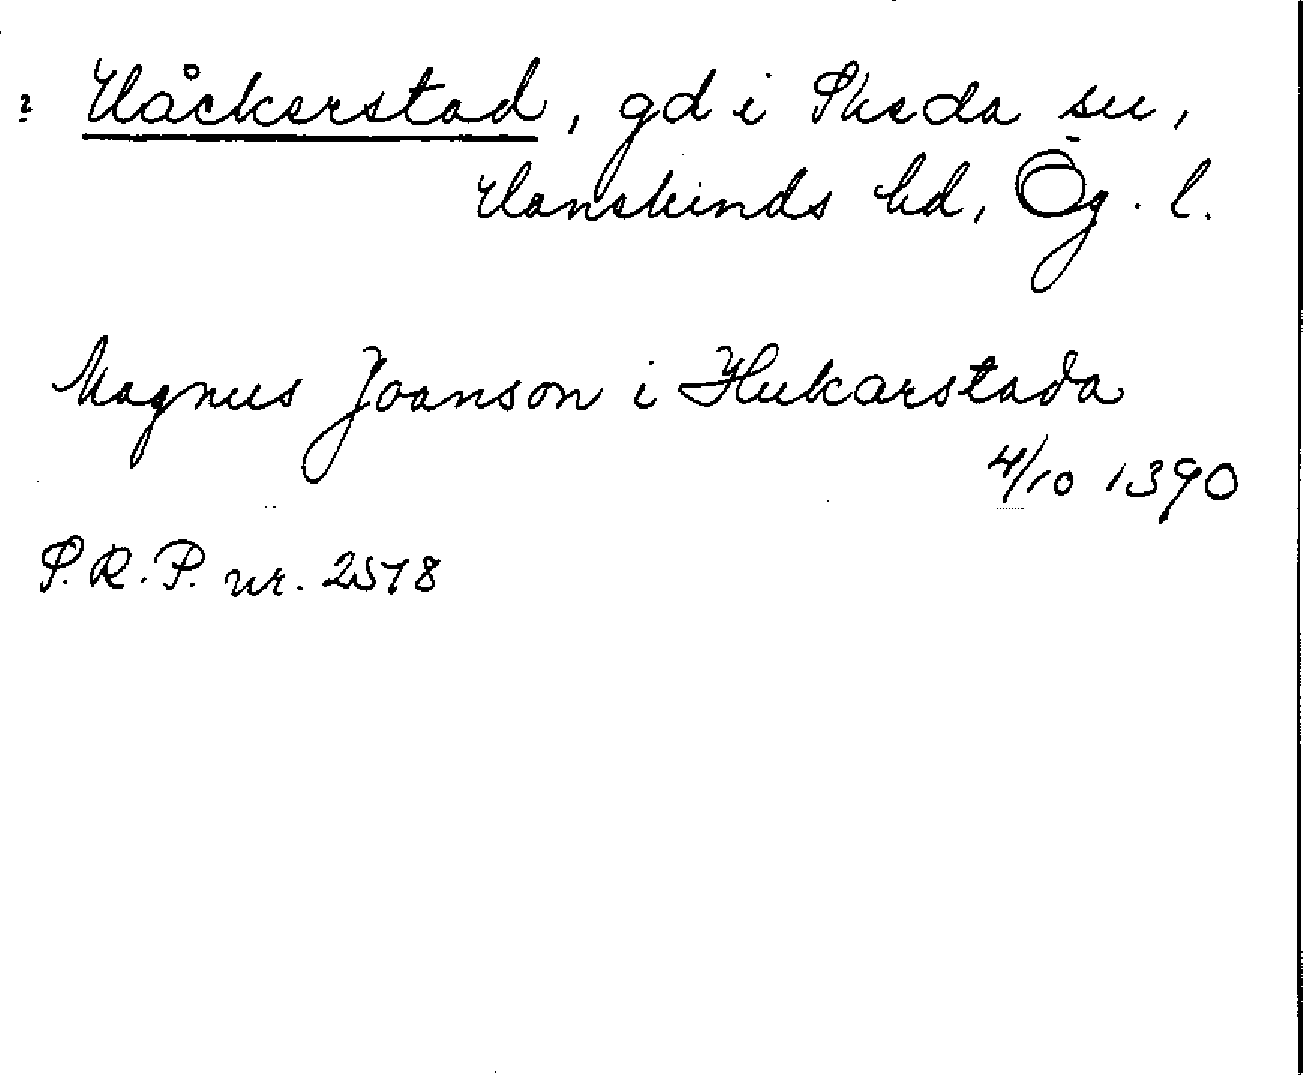 ? Håckerstad, gd i Skeda sn,
Hanekinds hd, Ög. l.
Magnus Joanson i Hukarstada
4/10 1390
S.R.P. nr. 2578